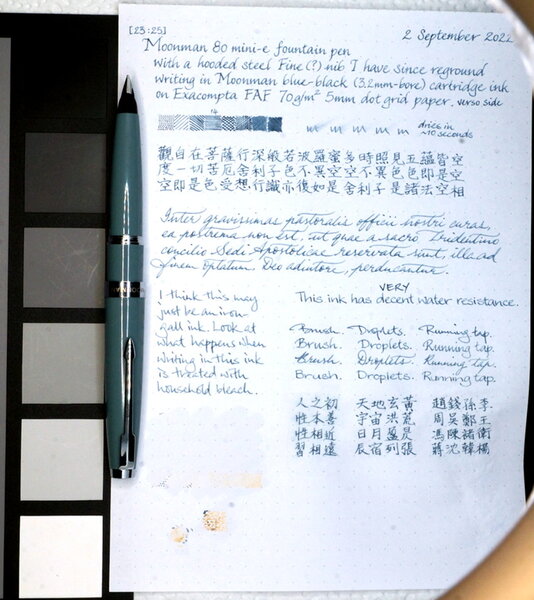 [23:25]
2 September 2022
Moonman 80 mini-e fountain pen
with a hooded steel Fine(?) nib I have since reground
writing in Moonman blue-black (3.2mm-bore) cartridge ink
on Exacompta FAF 70g/m² 5mm dot grid paper. verso side
dries in
~10 seconds
觀自在菩薩行深般若波羅蜜多時照見五蘊皆空
度一切苦厄舍利子色不異空空不異色色即是空
空即是色受想行識亦復如是舍利子是諸法空相
Inter gravissimas pastoralis officii nostri curas,
ea postrema non est, ut quae a sacro Tridentino
concilio Sedi Apostolicae reservata sunt, illa ad
finem optatum, Deo adiutore, perducantur.
I think this may
just be an iron
gall ink. Look at
what happens when
writing in this ink
is treated with
household bleach.
VERY
This ink has decent water resistance.
Brush. Droplets. Running tap.
Brush. Droplets. Running tap.
Brush. Droplets. Running tap.
Brush. Droplets. Running tap.
人之初 天地玄黃 趙錢孫李
性本善 宇宙洪荒 周吳鄭王
性相近 日月盈昃 馮陳褚衛
習相遠 辰宿列張 蔣沈韓楊